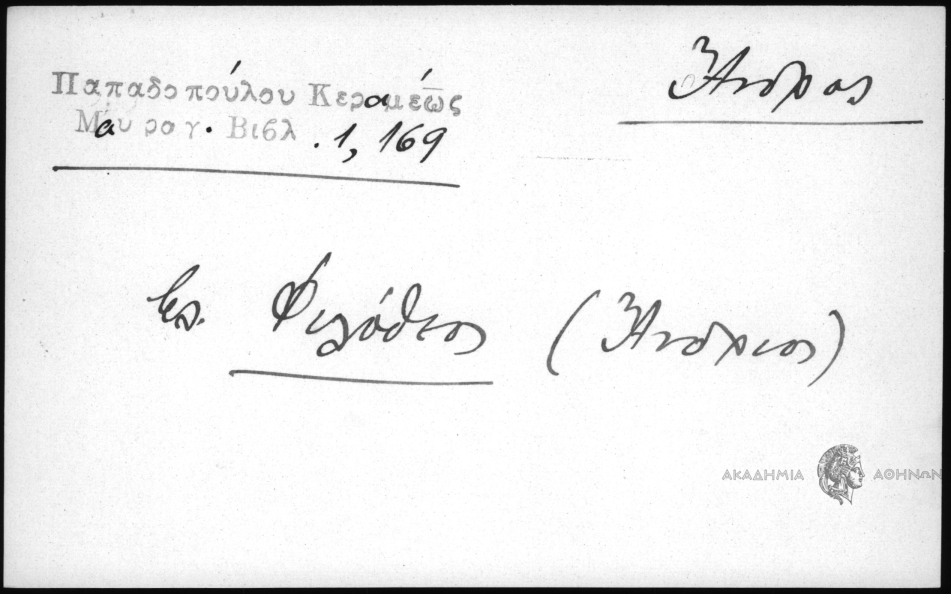 Παπαδοπούλου Κεραμέως
Μαυρογ. Βιβλ. 1, 169
Ἄνδρος
Φιλόθεος (Ἄνδριος)
ΑΚΑΔΗΜΙΑ ΑΘΗΝΩΝ